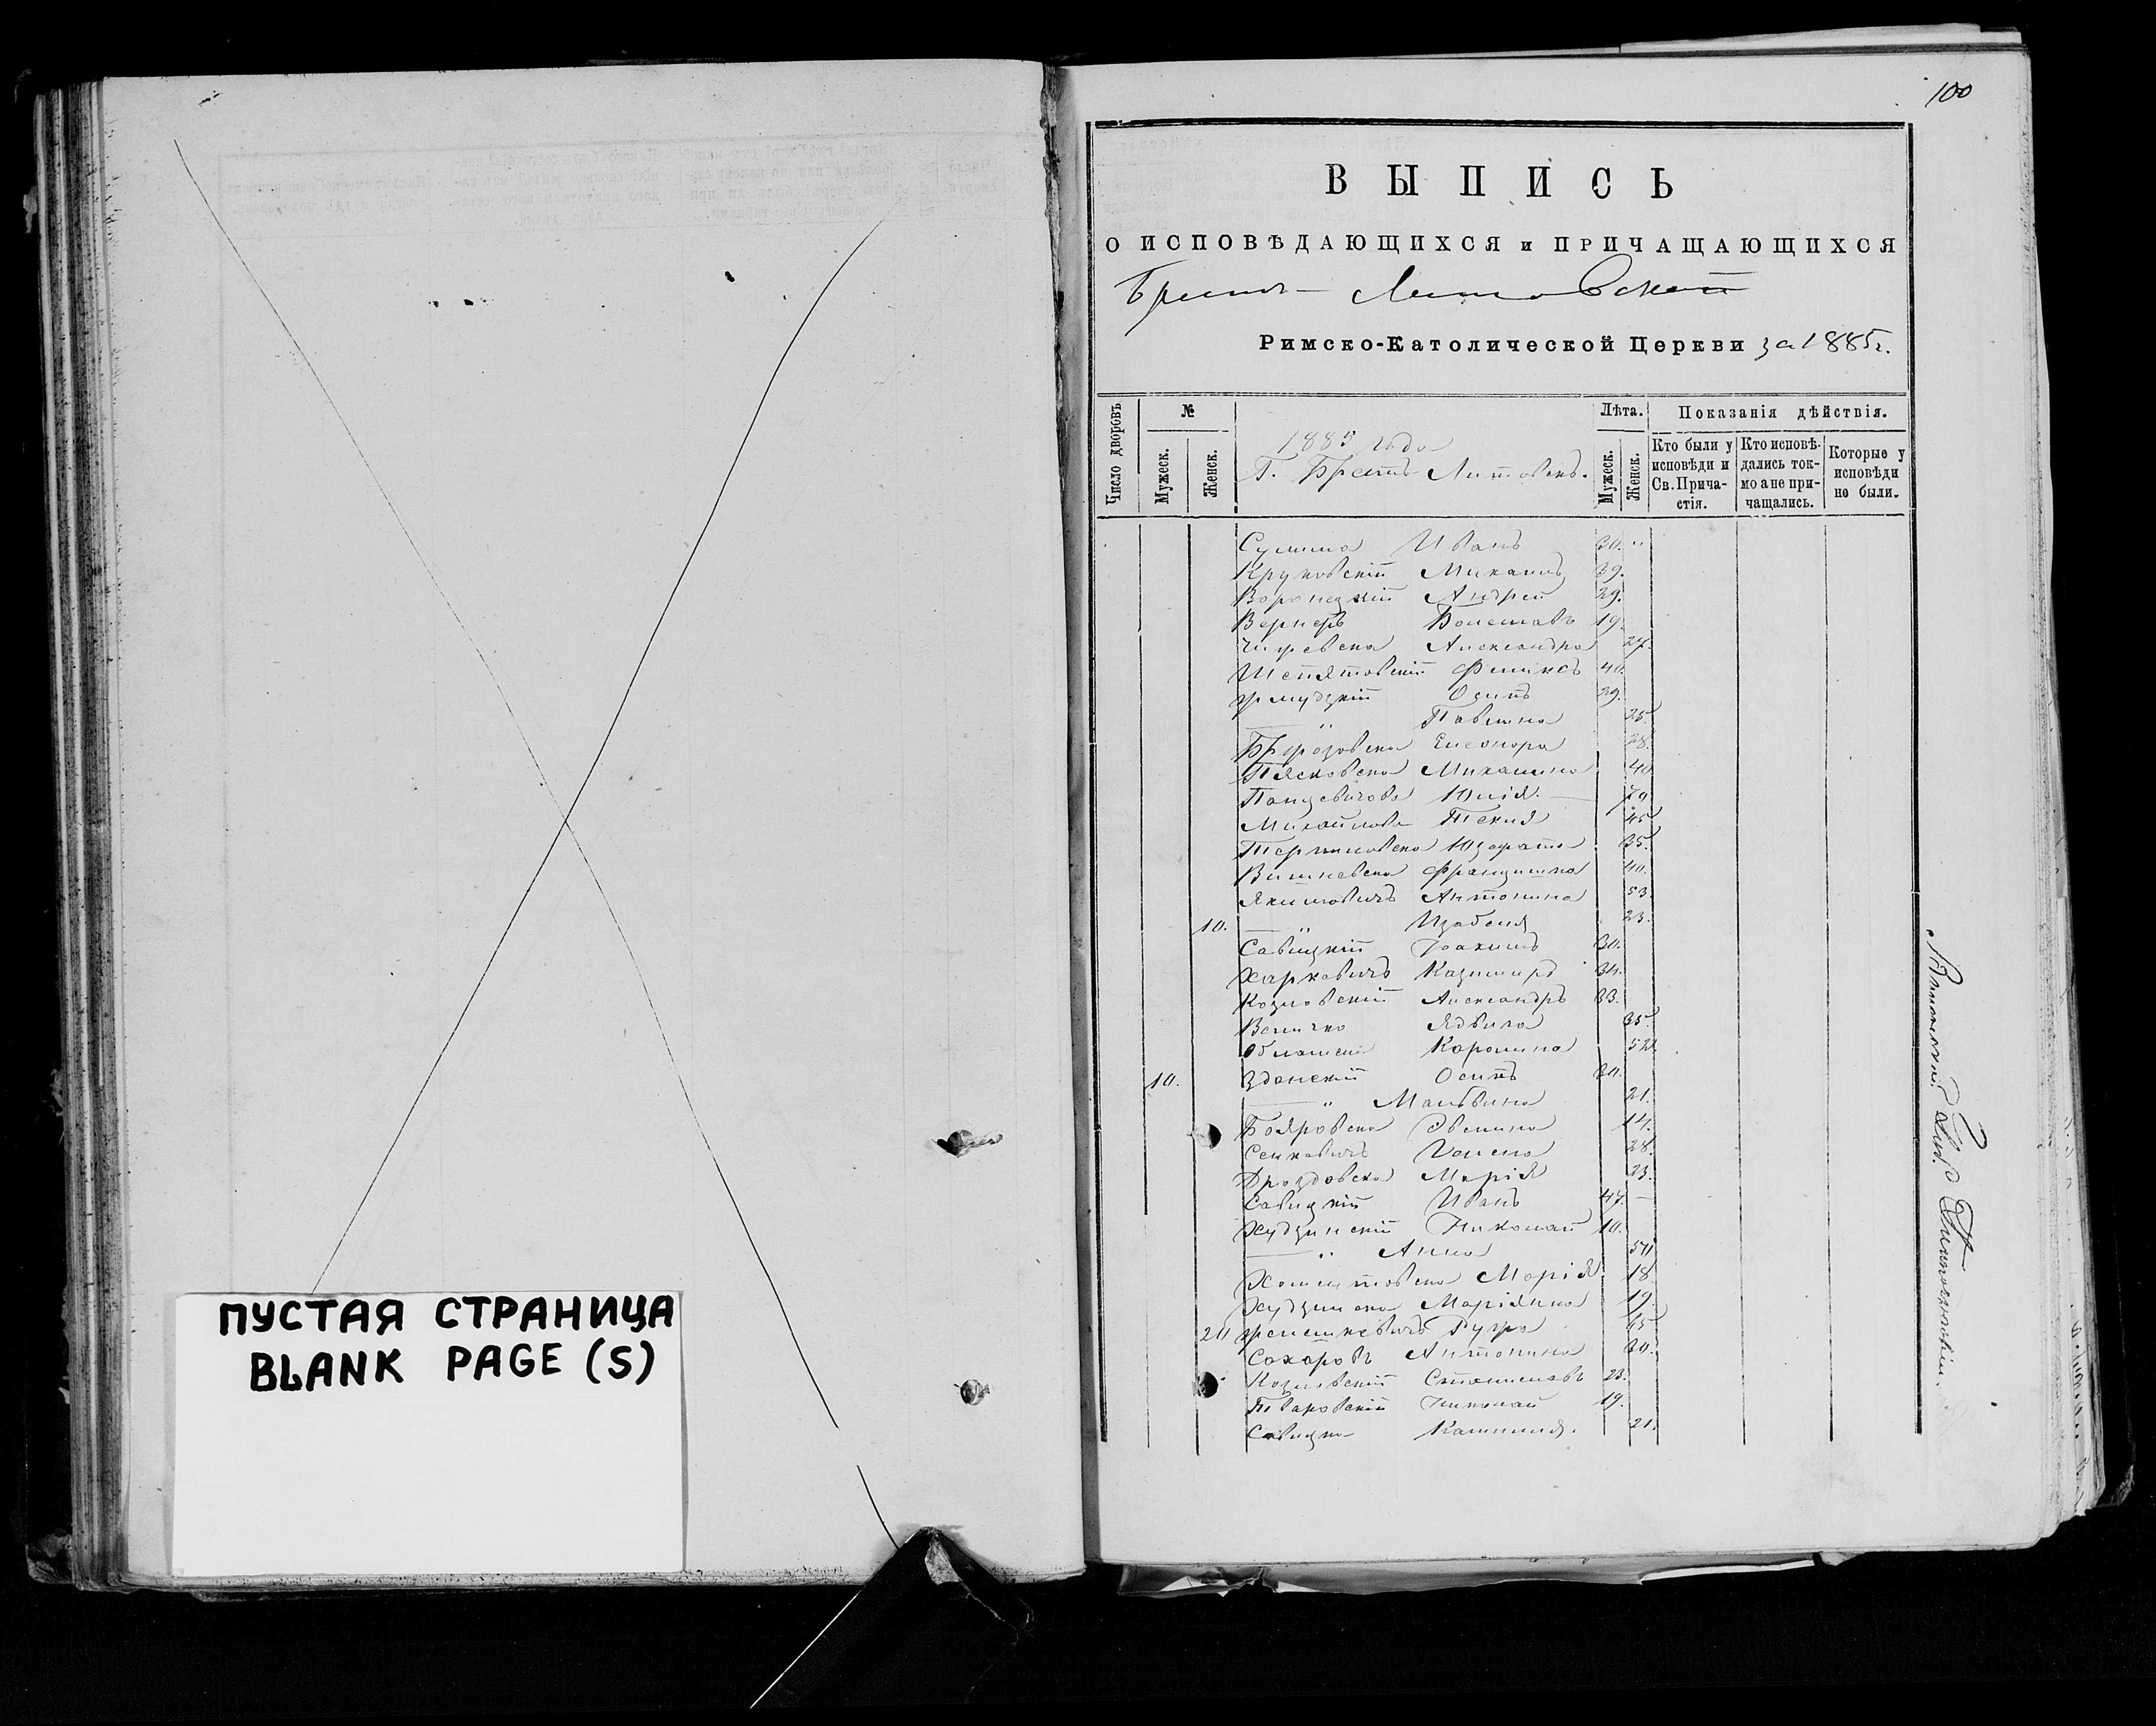 ПУСТАЯ СТРАНИЦА
BLANK PAGE (S)
100
ВЫПИСЬ
О ИСПОВѢДАЮЩИХСЯ и ПРИЧАЩАЮЩИХСЯ
Брестъ-Литовской
Римско-Католической Церкви за 1885г.
Число дворовъ
№
Мужеск.
Женск.
1885 года
Г. Брестъ Литовскъ.
Лѣта.
Мужеск.
Женск.
Показанія дѣйствія.
Кто были у исповѣди и Св. Прича-стія.
Кто исповѣ-дались ток-мо а не при-чащались.
Которые у исповѣди не были.
Иванъ 30. "
Круковскій Михаилъ 39.
Воронецкій Андрей 29.
Вернеръ Болеславъ 19.
Александра 27.
Феликсъ 40.
Жмудзкій Осипъ 29.
— " Павлина 25.
Элеонора 28.
Пясковска Михалина 40
Юлія — 70
Михайлова Текля 45
Юзефата 35.
Вишневска Францишка 40.
Якимовичъ Антонина 53.
10. — " Изабеля 23.
Савицкій Іоахимъ 30.
Харкевичъ Казимиръ 34.
Козловскій Александръ 33.
Величко Ядвига 35.
Каролина 52.
10. Зданскій Осипъ 30.
— " Мальвина 21.
Бояровска Эвелина 14.
Сенкевичъ Елена 28.
Дроздовска Марія 23.
Савицкій Иванъ 47. —
Худзинскій Николай 10.
— " Анна 50
Марія 18
Худзинска Маріянна 19.
20 65
Сахаровъ Антонина 30.
Козловскій Станиславъ 23.
Николай 19.
Савицка Камиля. 21.